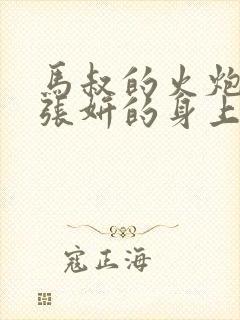 馬叔的火炮
張妍的身上
寇正海